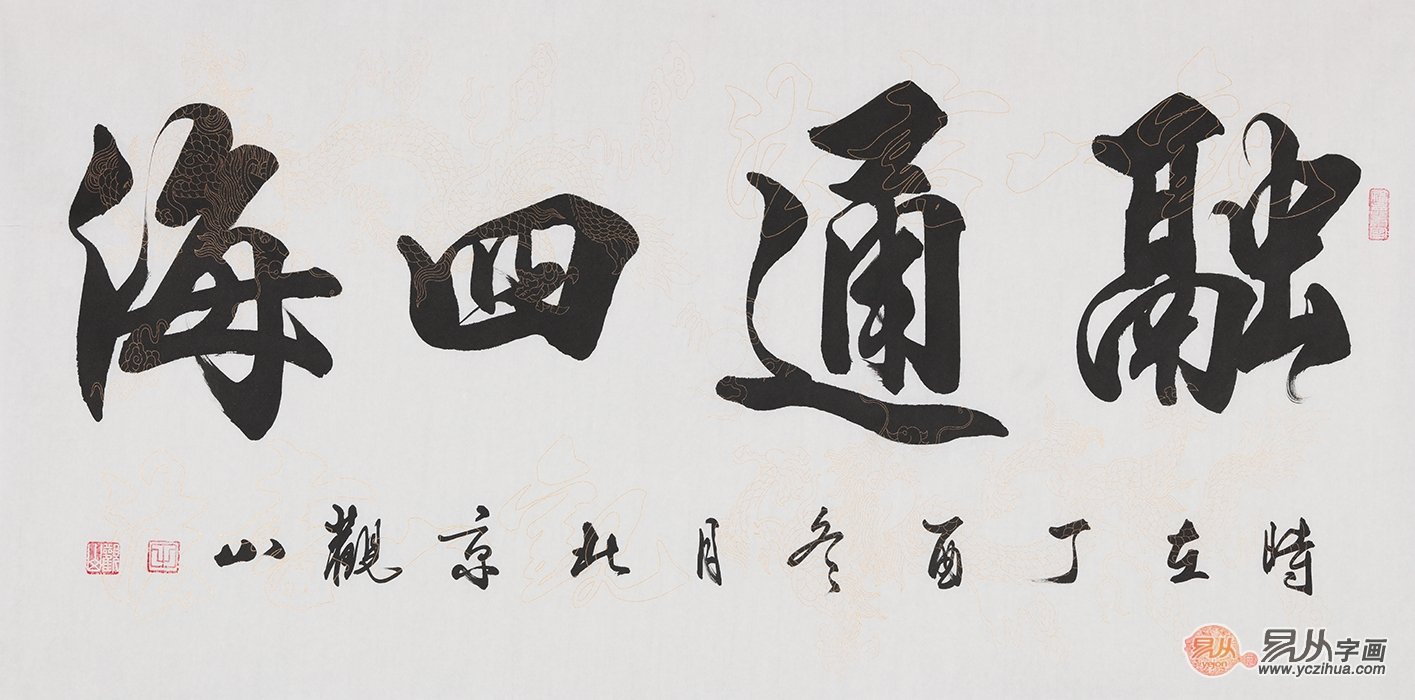 融通四海
時在丁酉冬月北京觀山
易从字画
yczihua.com
www.yczihua.com